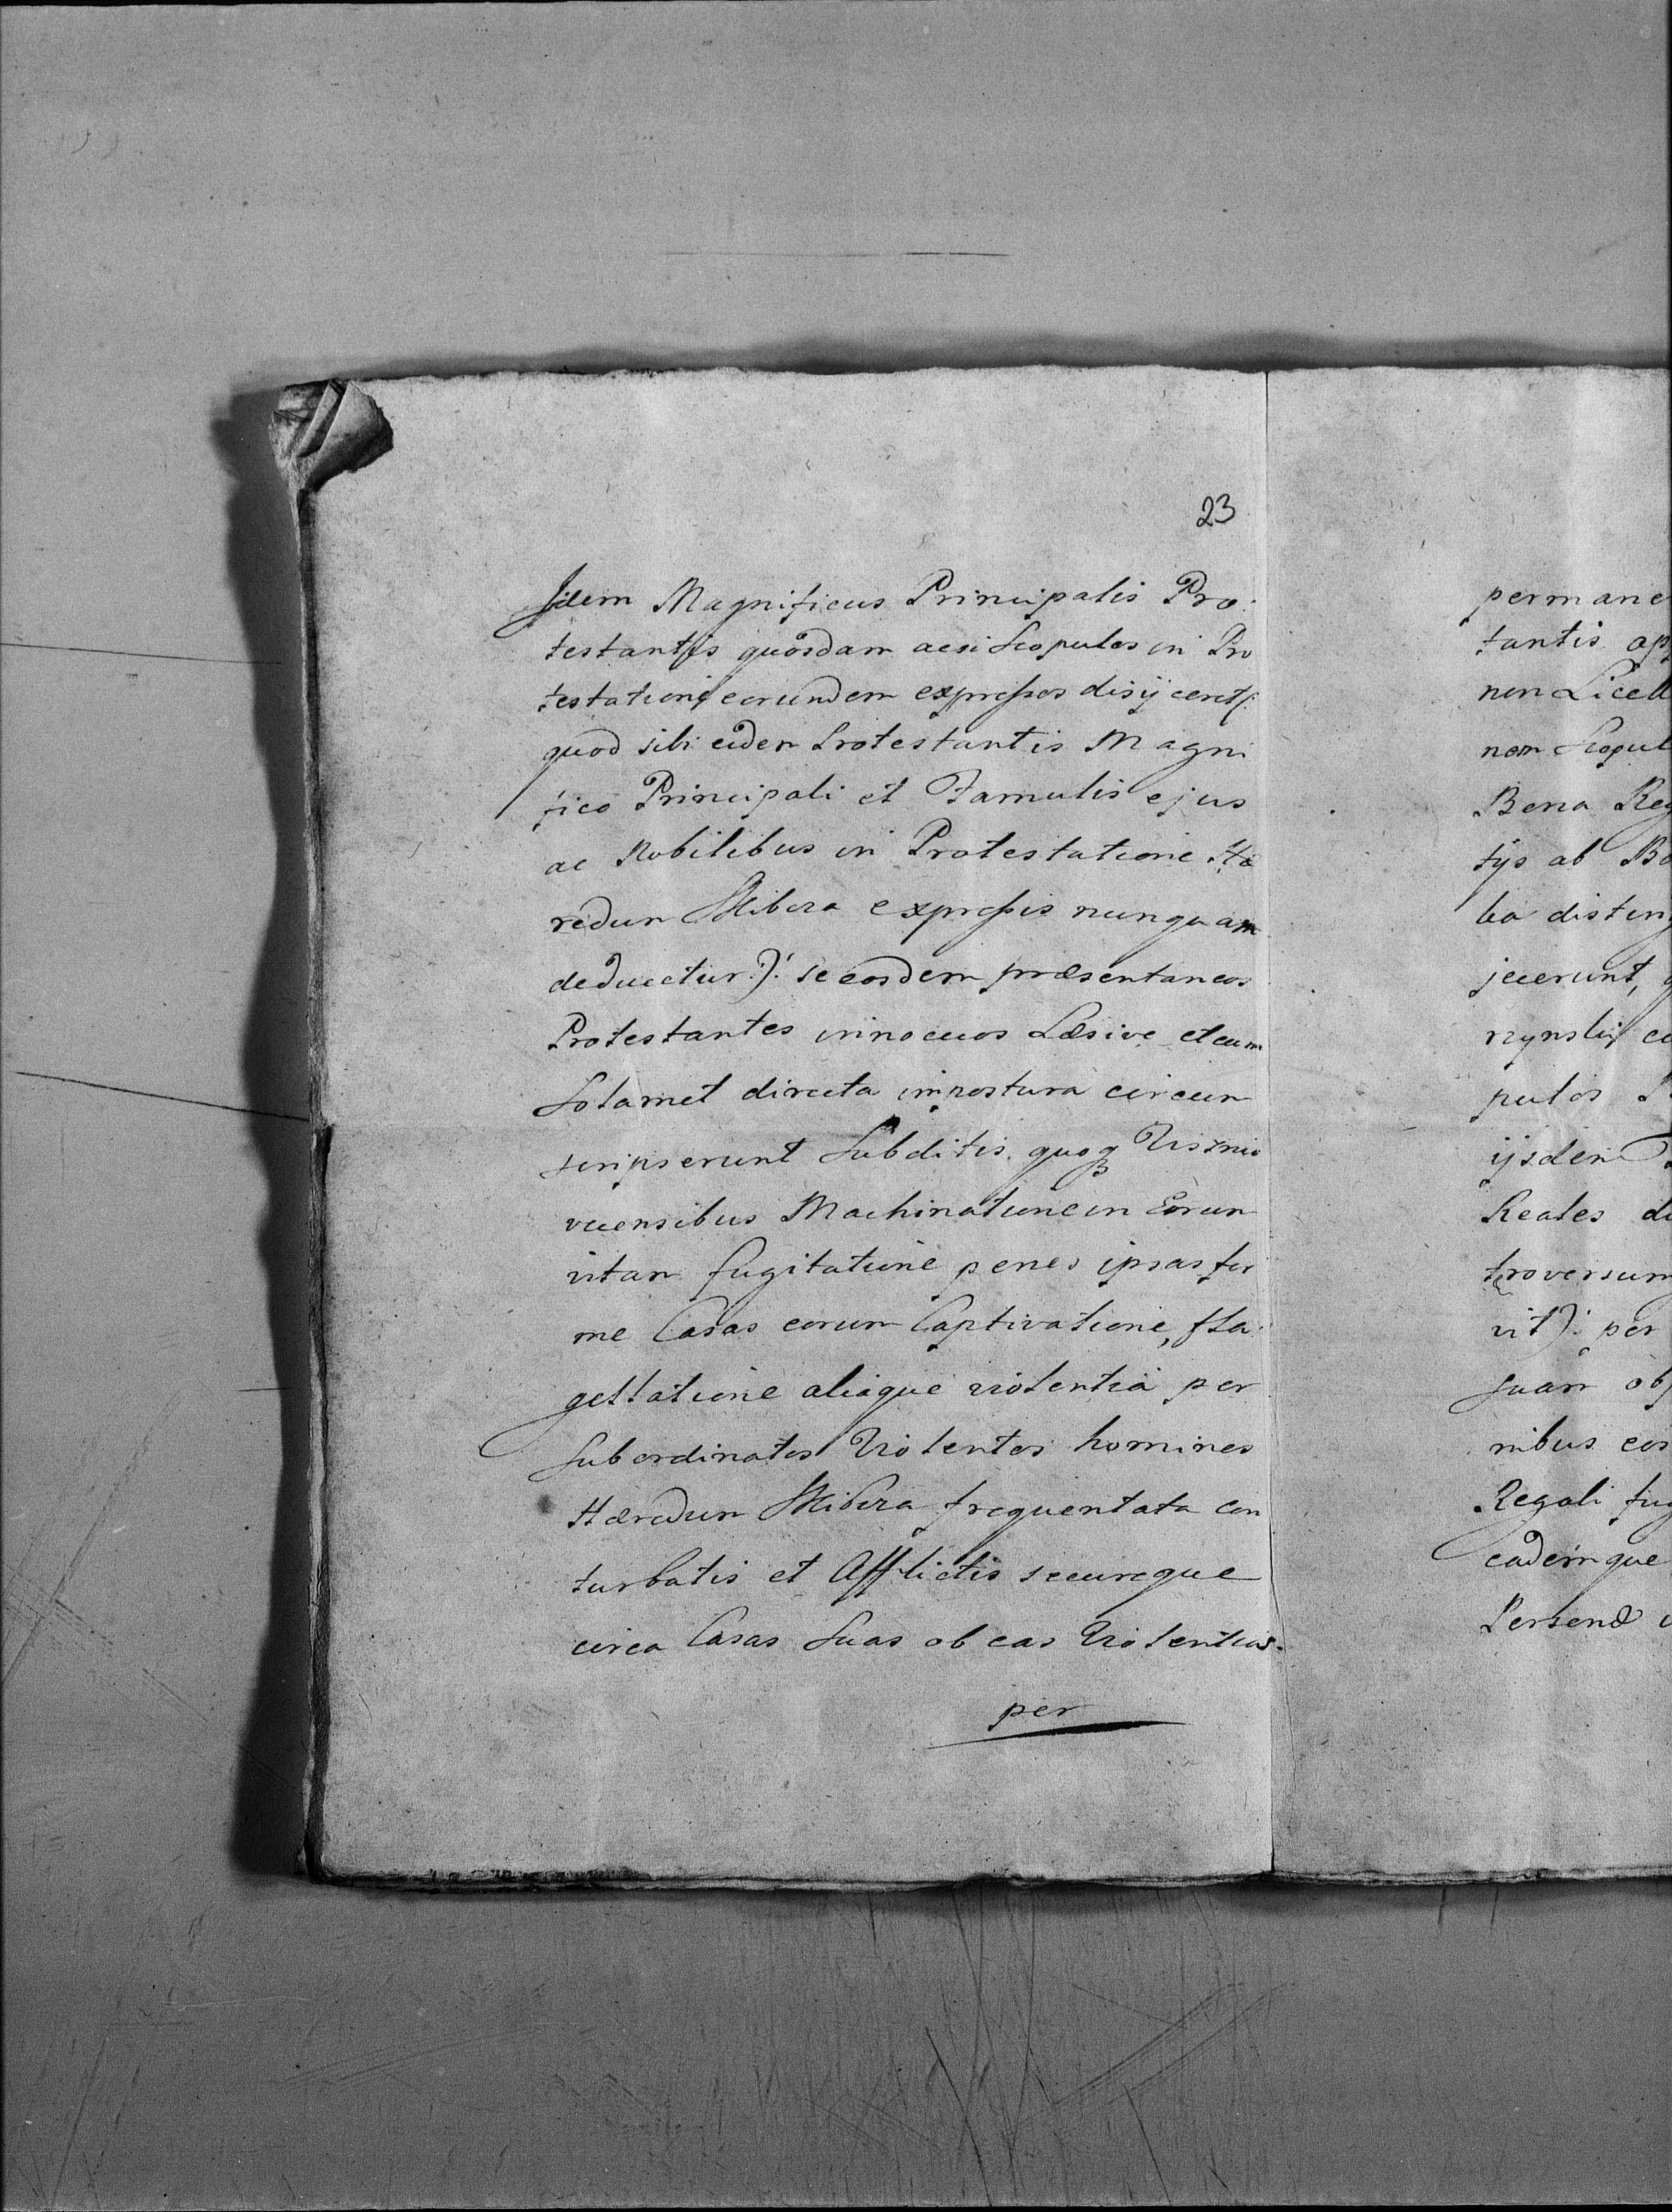 23
Idem Magnificus Principalis Pro:
testantis quosdam acsi Scopulos in Pro
testatione eorundem expressos disijceret/:
quod sibi eidem Protestantis Magni
fico Principali et Famulis ejus
ac Nobilibus in Protestatione Hæ
redum Skibera expressis nunquam
deducetur:/: se eosdem præsentaneos
Protestantes innocuos Læsive et cum
Solamet directa impostura circum
scripserunt Subditis quoq
vcensibus Machinatione in Eorum
vitam fugitatione penes ipsas fer
me Casas eorum Captivatione, fla:
gellatione aliaque violentia per
Subordinatos Violentos homines
Hæredum Skibera frequentata con
turbatis et Afflictis secureque
circa Casas Suas ob eas Violentias.
per
permane
tantis
non Licell
nem Scopul
Bona Reg
tijs ab Bo
ba distin
jecerunt,
pulos
ijsdem
Reales
troversum
vit): per
suam ob
nibus eos
Regali fug
eademque
Personæ